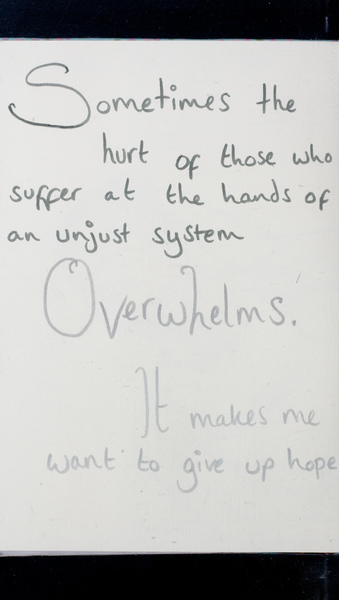 Sometimes the
hurt of those who
suffer at the hands of
an unjust system
Overwhelms.
It makes me
want to give up hope